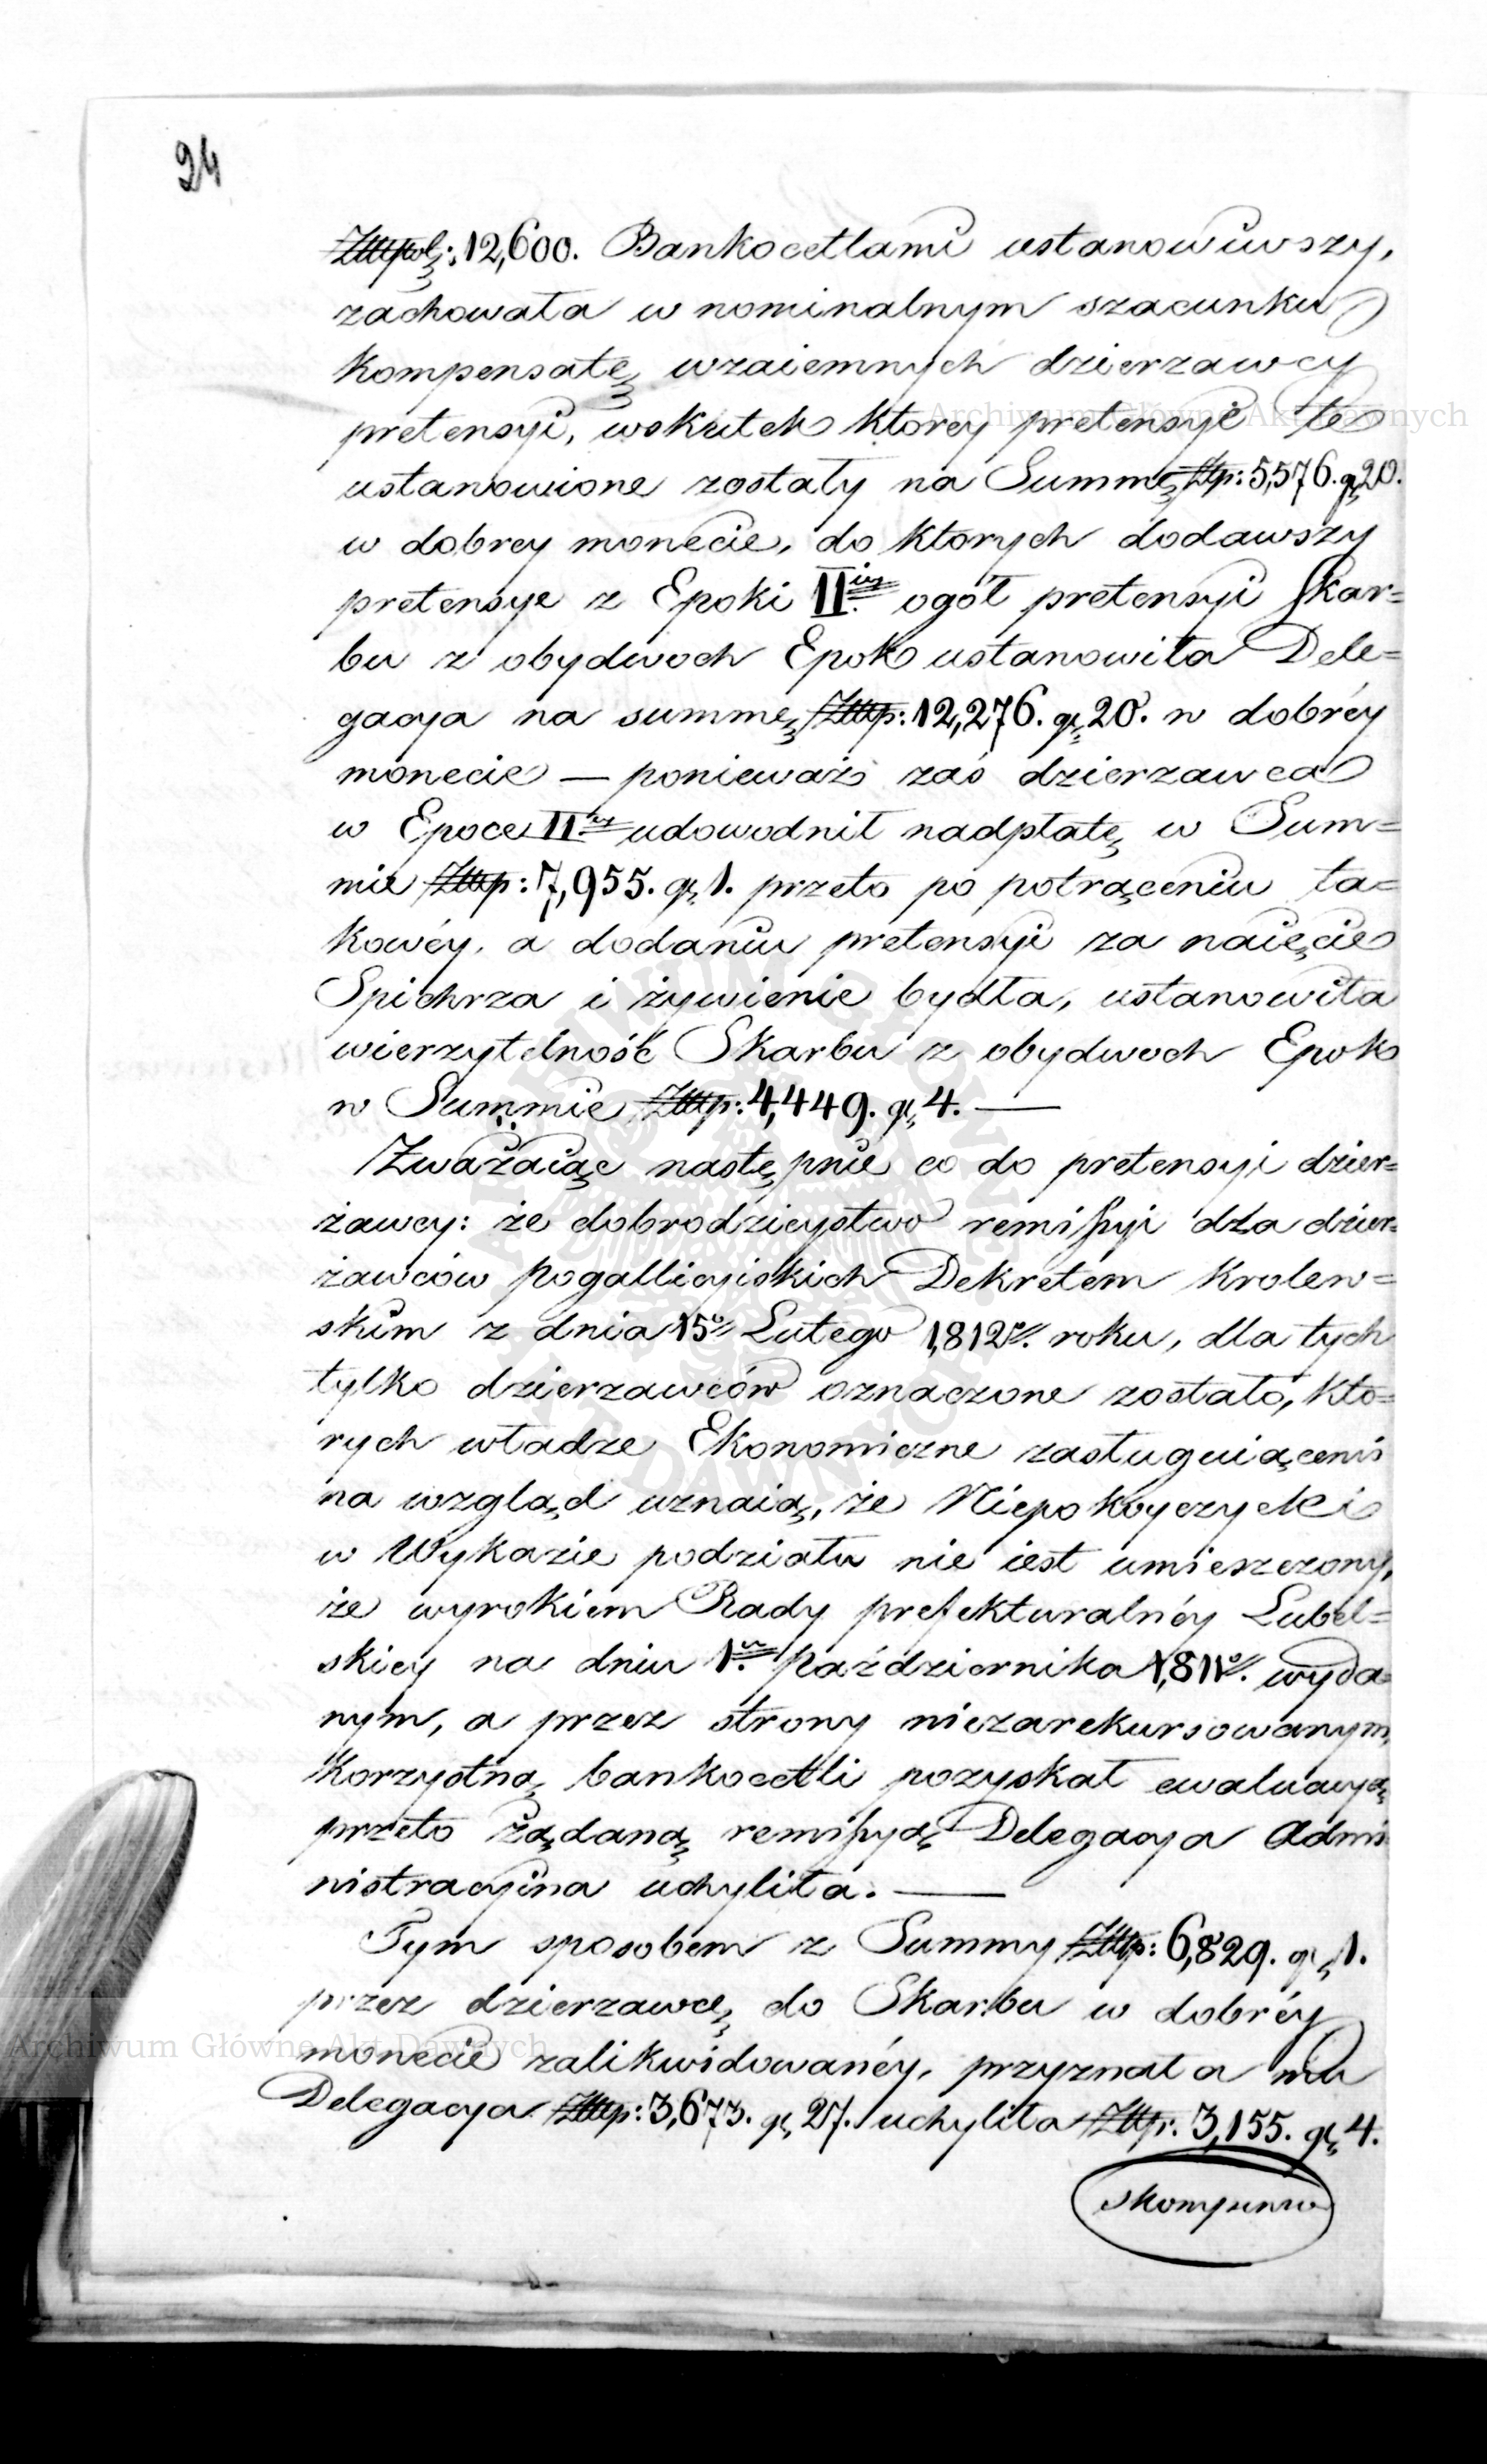 24
Złłpol: 12,600. Bankocetlami ustanowiwszy,
zachowała w nominalnym szacunku
kompensatę wzaiemnych dzierzawcy
pretensyi, wskutek ktorey pretensye te
ustanowione zostały na Summę Złp: 5,576. gr 20.
w dobrey monecie, do ktorych dodawszy
pretensye z Epoki II.iey ogół pretensyi Skar=
bu z obydwoch Epok ustanowiła Dele=
gacya na summę Złłp: 12,276. gr 20. w dobréy
monecie — ponieważ zaś dzierzawca
w Epoce II.iey udowodnił nadpłatę w Sum=
mie Złłp: 7,955. gr 1. przeto po potrąceniu ta=
kowéy, a dodaniu pretensyi za naięcie
Spichrza i żywienie bydła, ustanowiła
wierzytelność Skarbu z obydwoch Epok
w Summie Złłp: 4,449. gr 4. —
Zważaiąc następnie co do pretensyi dzier=
żawcy: że dobrodzieystwo remissyi dla dzier=
żawców pogallicyiskich Dekretem Krolew=
skim z dnia 15o Lutego 1,812o. roku, dla tych
tylko dzierzawców oznaczone zostało, kto=
rych władze Ekonomiczne zasługuiącemi
na wzgląd uznaią, że Niepokoyczycki
w Wykazie podziału nie iest umieszczony,
że wyrokiem Rady prefekturalnéy Lubel=
skiey na dniu 1. października 1,811o. wyda=
nym, a przez strony niezarekursowanym,
korzystną bankocetli pozyskał ewaluacyą
przeto żądaną remissyą Delegacya Admi
nistracyina uchyliła. —
Tym sposobem z Summy Złłp: 6,829. gr 1.
przez dzierzawcę do Skarbu w dobréy
monecie zalikwidowanéy, przyznała mu
Delegacya Złłp: 3,673. gr 27. uchyliła Złłp: 3,155. gr 4.
skompenso
Archiwum Główne Akt Dawnych
Archiwum Główne Akt Dawnych
ARCHIWUM GŁÓWNE AKT DAWNYCH